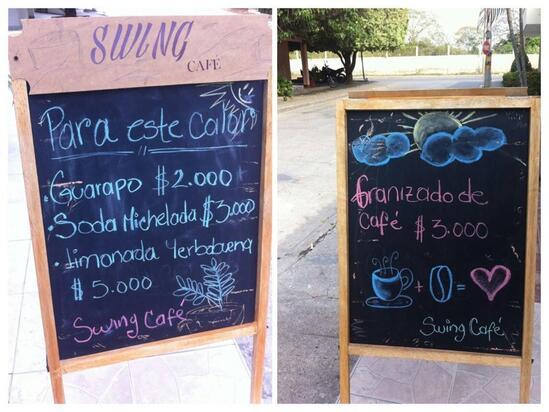 SWING
CAFÉ
Para este calor
• Guarapo $2.000
• Soda Michelada $3.000
• limonada Yerbabuena
$5.000
Swing Café
Granizado de
Café $3.000
+ =
Swing Café